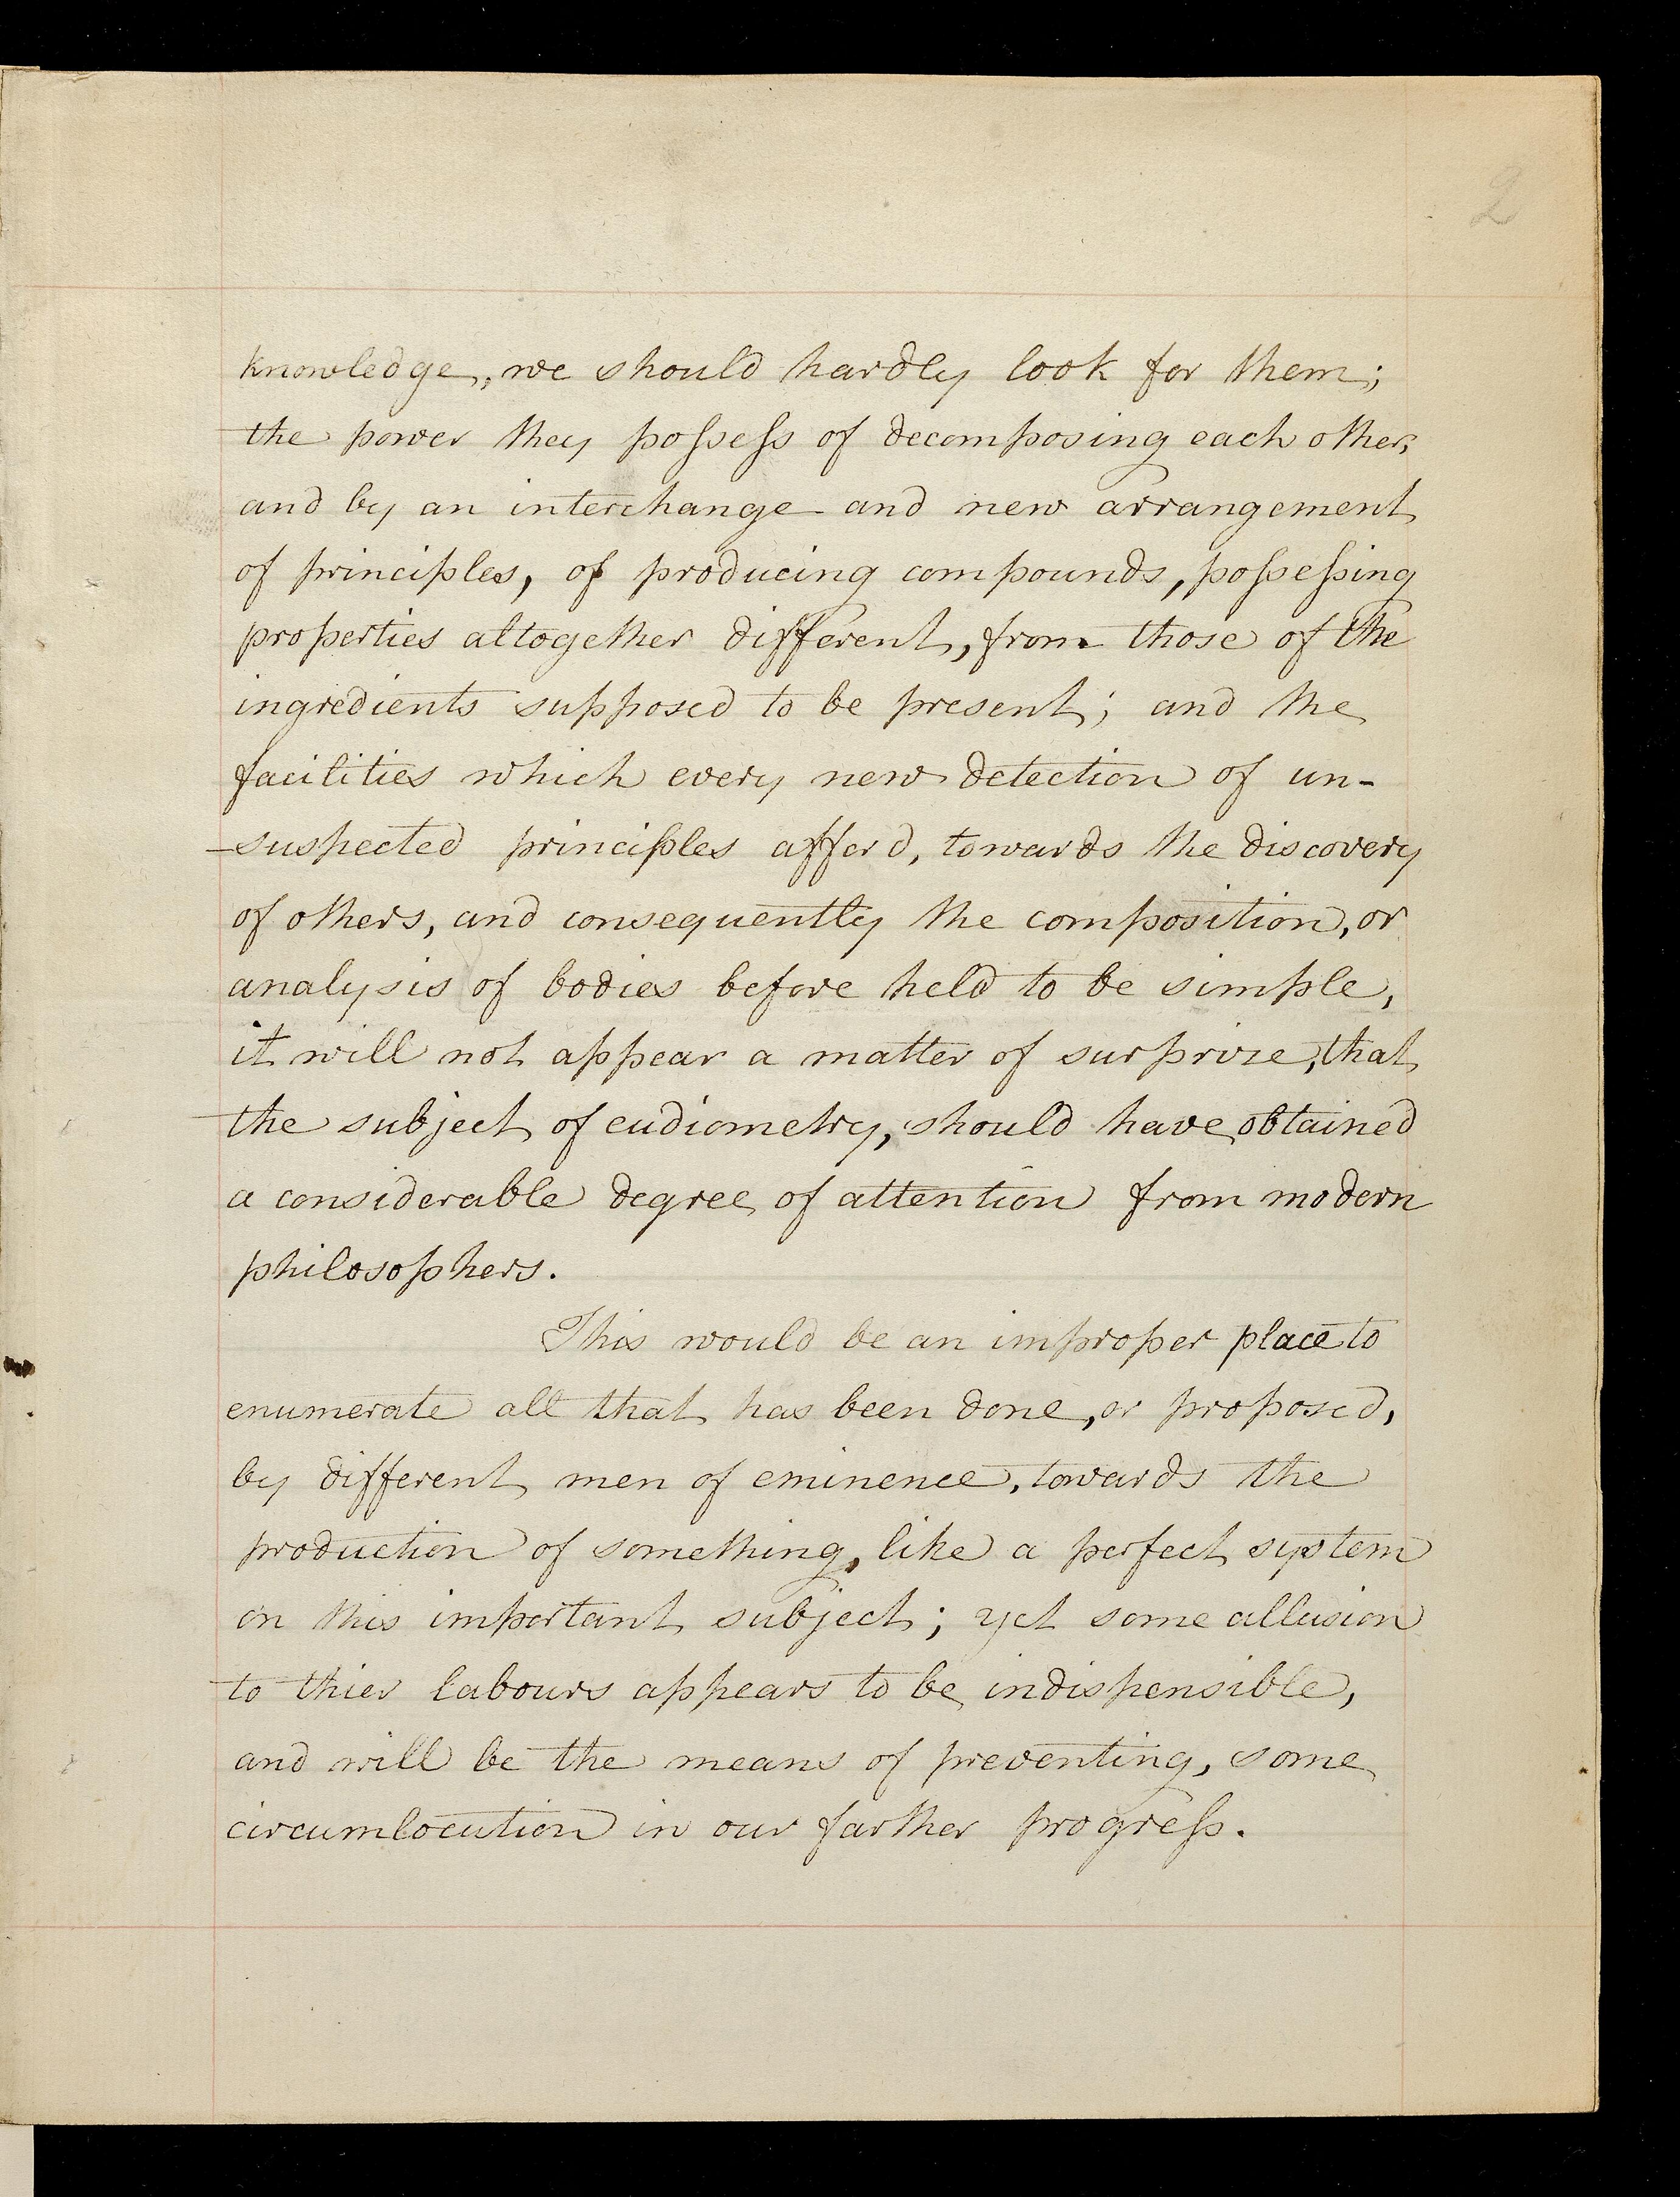 2
knowledge, we should hardly look for them;
the power they possess of decomposing each other,
and by an interchange and new arrangement
of principles, of producing compounds, possessing
properties altogether different, from those of the
ingredients supposed to be present; and the
facilities which every new detection of un-
-suspected principles afford, towards the discovery
of others, and consequently the composition, or
analysis of bodies before held to be simple,
it will not appear a matter of surprize, that
the subject of eudiometry, should have obtained
a considerable degree of attention from modern
philosophers.
This would be an improper place to
enumerate all that has been done, or proposed,
by different men of eminence, towards the
production of something, like a perfect system
on this important subject; yet some allusion
to thier labours appears to be indispensible,
and will be the means of preventing, some
circumlocution in our farther progress.